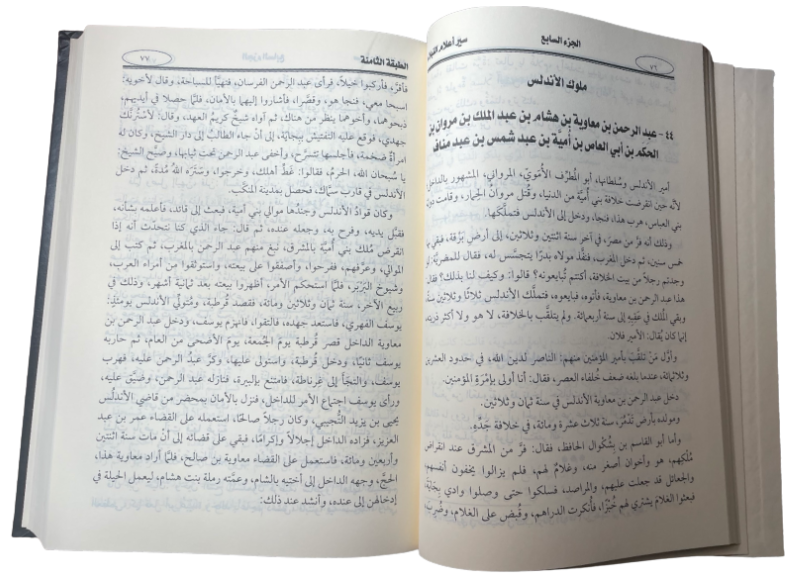 الجزء السابع
سير أعلام النبلاء
٧٦
ملوك الأندلس
٤٤ - عبد الرحمن بن معاوية بن هشام بن عبد الملك بن مروان بن
الحكم بن أبي العاص بن أمية بن عبد شمس بن عبد مناف
أمير الأندلس وسُلطانها، أبو المُطرِّف الأُموي، المرواني، المشهور بالداخل
لأنه حين انقرضت خلافة بني أميَّة من الدنيا، وقُتل مروانُ الحِمار، وقامت دولة
بني العباس، هرب هذا، فنجا، ودخل إلى الأندلس فتملَّكها.
وذلك أنه فرَّ من مصر، في آخر سنة اثنتين وثلاثين، إلى أرض بَرْقة، فبقي بها
خمس سنين، ثم دخل المغرب، فنفَّذ مولاه بدرًا يتجسَّس له، فقال للمضريَّة: لو
وجدتم رجلًا من بيت الخلافة، أكنتم تُبايعونه؟ قالوا: وكيف لنا بذلك؟ فقال:
هذا عبد الرحمن بن معاوية، فأتوه، فبايعوه، فتملَّك الأندلس ثلاثًا وثلاثين سنة،
وبقي المُلك في عَقِبه إلى سنة أربعمائة. ولم يتلقَّب بالخلافة، لا هو ولا أكثر ذريته،
إنما كان يُقال: الأمير فلان.
وأول من تلقَّب بأمير المؤمنين منهم: الناصر لدين الله، في حدود العشرين
وثلاثمائة، عندما بلغه ضعف خُلفاء العصر، فقال: أنا أولى بإمْرَة المؤمنين.
دخل عبد الرحمن بن معاوية الأندلس في سنة ثمان وثلاثين.
ومولده بأرض تَدْمُر، سنة ثلاث عشرة ومائة، في خلافة جَدِّه.
وأما أبو القاسم بن بَشْكُوال الحافظ، فقال: فرَّ من المشرق عند انقراض
مُلكِهم، هو وأخوان أصغر منه، وغلامٌ لهم، فلم يزالوا يخفون أنفسهم،
والجعائل قد جعلت عليهم، والمراصد، فسلكوا حتى وصلوا وادي بِجَاية،
فبعثوا الغلام يشتري لهم خُبزًا، فأنكرت الدراهم، وقُبض على الغلام، وضُرب،
الطبقة الثامنة
٧٧
فأقرَّ، فأركبوا خيلًا، فرأى عبد الرحمن الفرسان، فتهيَّأ للسباحة، وقال لأخويه:
اسبحا معي، فنجا هو، وقصَّرا، فأشاروا إليهما بالأمان، فلمَّا حصلا في أيديهم،
ذبحوهما، وأخوهما ينظر من هناك، ثم آواه شيخٌ كريمُ العهد، وقال: لأسْتُرنَّك
جهدي، فوقع عليه التفتيش ببجاية، إلى أن جاء الطالب إلى دار الشيخ، وكان له
امرأةٌ ضخمة، فأجلسها تتسرَّح، وأخفى عبد الرحمن تحت ثيابها، وصيَّح الشيخ:
يا سُبحان الله، الحَرَمُ، فقالوا: غطِّ أهلك، وخرجوا، وسَتَره اللهُ مُدةً، ثم دخل
الأندلس في قارب سمَّاك، فحصل بمدينة المنكَّب.
وكان قوادُ الأندلس وجندُها موالي بني أمية، فبعث إلى قائد، فأعلمه بشأنه،
فقبَّل يديه، وفرح به، وجعله عنده، ثم قال: جاء الذي كنا نتحدَّث أنه إذا
انقرض مُلك بني أُميَّة بالمشرق، نبغ منهم عبد الرحمن بالمغرب، ثم كتب إلى
الموالي، وعرَّفهم، ففرحوا، وأصفقوا على بيعته، واستوثقوا من أمراء العرب،
وشيوخ البَرْبَر، فلمَّا استحكم الأمر، أظهروا بيعته بعد ثمانية أشهر، وذلك في
ربيع الآخر، سنة ثمان وثلاثين ومائة، فقصد قُرطبة، ومُتولِّي الأندلس يومئذٍ:
يوسف الفهري، فاستعد جهده، فالتقوا، فانهزم يوسف، ودخل عبد الرحمن بن
معاوية الداخلُ قصر قرطبة يومَ الجُمعة، يومَ الأضحى من العام، ثم حاربه
يوسف ثانيًا، ودخل قُرطبة، واستولى عليها، وكرَّ عبدُ الرحمن عليه، فهرب
يوسُف، والتجأ إلى غَرناطة، فامتنع بإلبيرة، فنازله عبد الرحمن، وضيَّق عليه،
ورأى يوسف اجتماع الأمر للداخل، فنزل بالأمان بمحضر من قاضي الأندلس
يحيى بن يزيد التُّجيبي، وكان رجلًا صالحًا، استعمله على القضاء عمر بن عبد
العزيز، فزاده الداخل إجلالًا وإكرامًا، فبقي على قضائه إلى أن مات سنة اثنتين
وأربعين ومائة، فاستعمل على القضاء معاوية بن صالح، فلمَّا أراد معاوية هذا،
الحجَّ، وجهه الداخل إلى أختيه بالشام، وعمَّته رملة بنت هشام، ليعمل الحيلة في
إدخالهن إلى عنده، وأنشد عند ذلك: